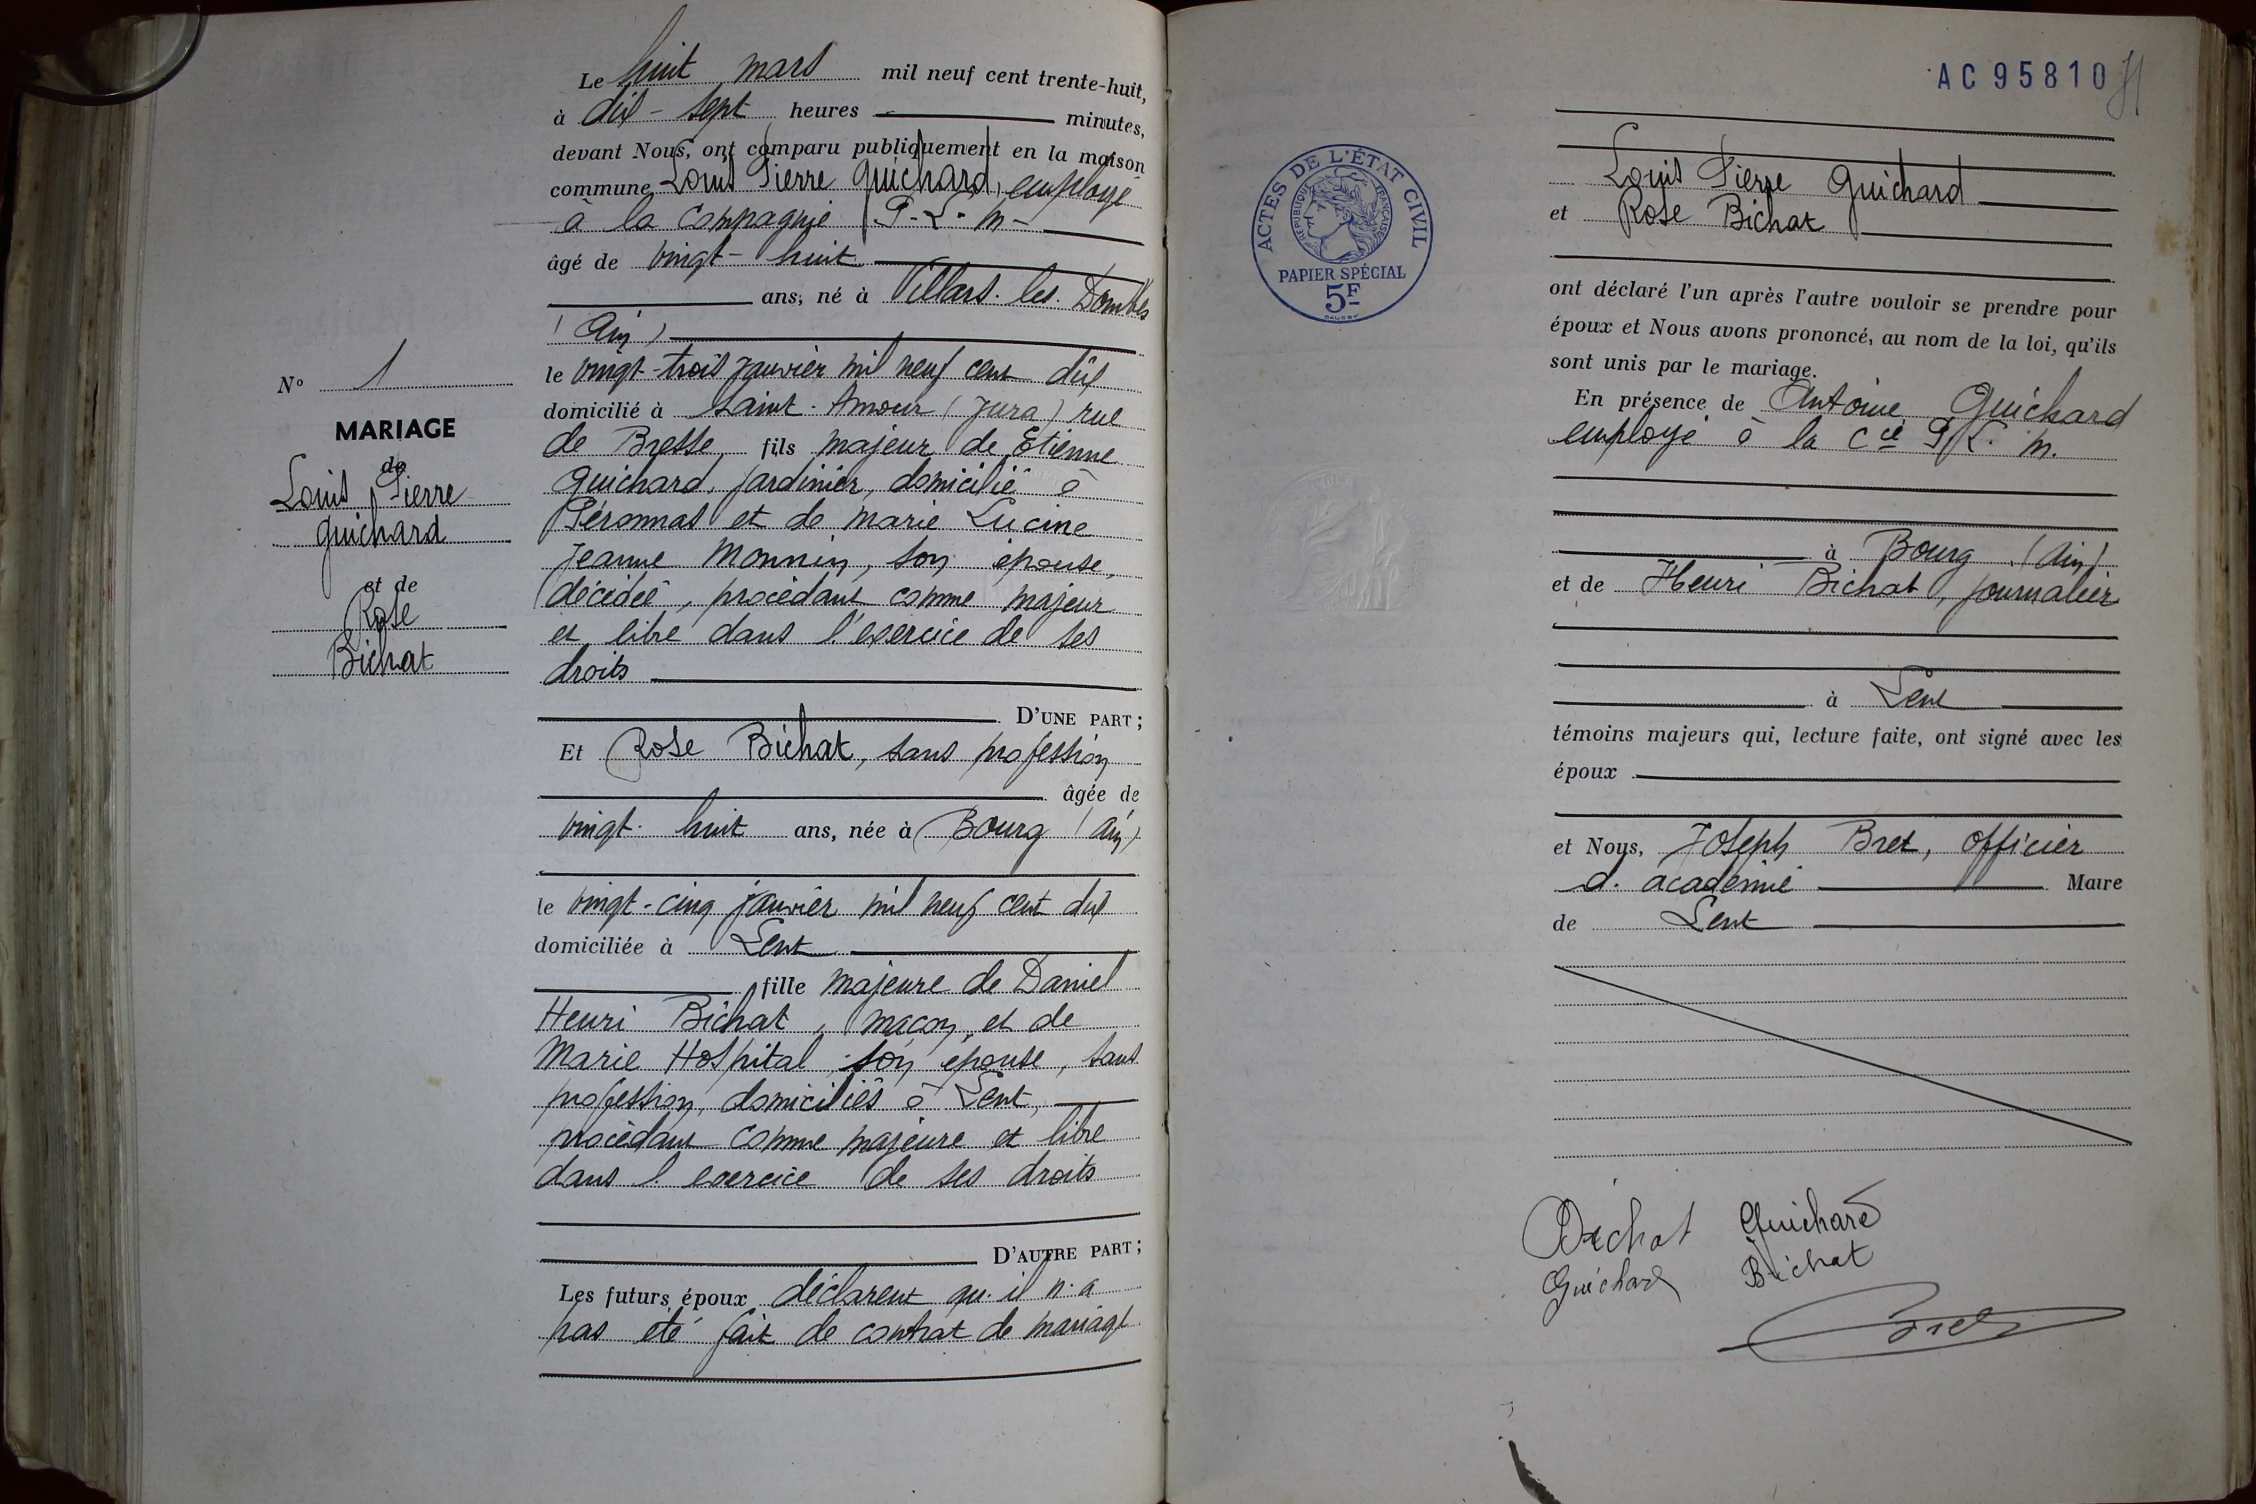 Le huit mars mil neuf cent trente-huit,
à dix-sept heures minutes,
devant Nous, ont comparu publiquement en la maison
commune Louis Pierre Guichard, employé
à la Compagnie P.L.M.
âgé de vingt-huit
ans, né à Villars-les-Dombes
(Ain)
le vingt-trois janvier mil neuf cent dix
domicilié à Saint-Amour (Jura) rue
de Bresse, fils majeur de Etienne
Guichard, jardinier, domicilié à
Péronnas et de Marie Lucine
Jeanne Monnin, son épouse,
décédée, procédant comme majeur
et libre dans l'exercice de ses
droits
D'UNE PART;
Et Rose Bichat, sans profession
âgée de
vingt-huit ans, née à Bourg (Ain)
le vingt-cinq janvier mil neuf cent dix
domiciliée à Lent
fille majeure de Daniel
Henri Bichat, maçon, et de
Marie Hospital, son épouse, sans
profession, domiciliés à Lent,
procédant comme majeure et libre
dans l'exercice de ses droits
D'AUTRE PART;
Les futurs époux déclarent qu'il n'a
pas été fait de contrat de mariage
N° 1
MARIAGE
de
Louis Pierre
Guichard
et de
Rose
Bichat
AC 95810
ACTES DE L'ÉTAT CIVIL
RÉPUBLIQUE FRANÇAISE
PAPIER SPÉCIAL
5F
Louis Pierre Guichard
et Rose Bichat
ont déclaré l'un après l'autre vouloir se prendre pour
époux et Nous avons prononcé, au nom de la loi, qu'ils
sont unis par le mariage.
En présence de Antoine Guichard
employé à la Cie P.L.M.
à Bourg (Ain)
et de Henri Bichat, journalier
à Lent
témoins majeurs qui, lecture faite, ont signé avec les
époux
et Nous, Joseph Bret, officier
d'académie Maire
de Lent
Bichat Guichard
Guichard Bichat
Bret